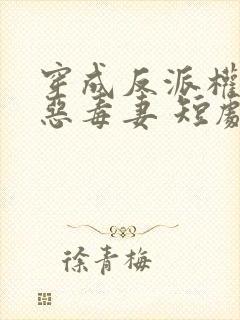 穿成反派權
惡毒妻 短劇
徐青梅